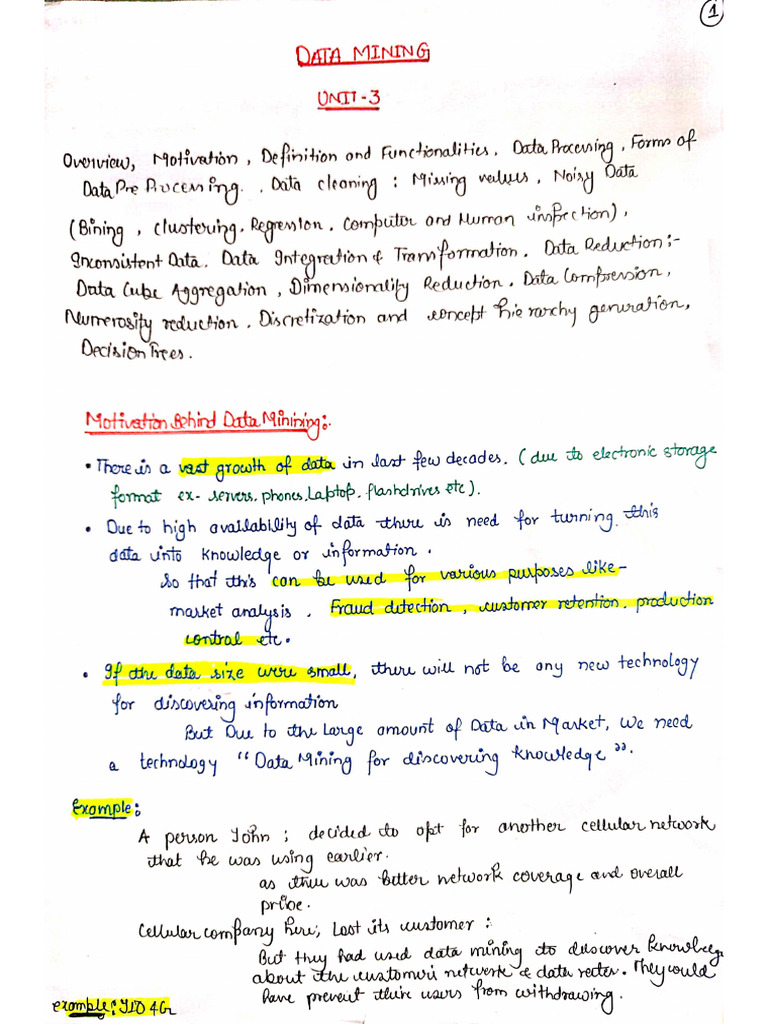 1
DATA MINING
UNIT-3
Overview, Motivation, Definition and Functionalities, Data Processing, Forms of
Data Pre Processing. , Data cleaning : Missing values, Noisy Data
(Bining, clustering, Regression, Computer and Human inspection),
Inconsistent Data. Data Integration & Transformation. Data Reduction:-
Data Cube Aggregation, Dimensionality Reduction, Data Compression,
Numerosity reduction, Discretization and concept hierarchy generation,
Decision Trees.
Motivation Behind Data Minining:.
• There is a vast growth of data in last few decades. (due to electronic storage
format ex- servers, phones, Laptop, flashdrives etc).
• Due to high availability of data there is need for turning this
data into knowledge or information.
So that this can be used for various purposes like-
market analysis, Fraud detection, customer retention, production
control etc.
• If the data size were small, there will not be any new technology
for discovering information
But Due to the Large amount of Data in Market, We need
a technology "Data Mining for discovering knowledge".
Example:
A person John; decided to opt for another cellular network
that he was using earlier.
as there was better network coverage and overall
price.
Cellular company here, Lost its customer:
But they had used data mining to discover knowledge
about the customer's network & data rates. They could
have prevent their users from withdrawing.
example: JIO 4G